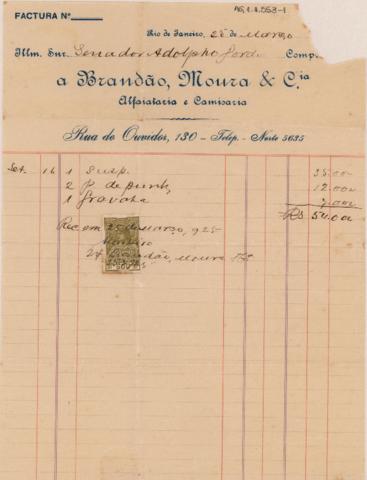 AG.1.1.553-1
FACTURA Nº
Rio de Janeiro, 25 de Março
Illm. Snr. Senador Adolpho Gordo Comp.
a Brandão, Moura & Cia
Alfaiataria e Camisaria
Rua do Ouvidor, 130 - Telep. - Norte 5635
Set. 16 1 Susp. 35.000
2 P. de punhos 12.000
1 gravata 7.000
Rs 54.000
Rec em 25 de Março, 925
Brandão, Moura